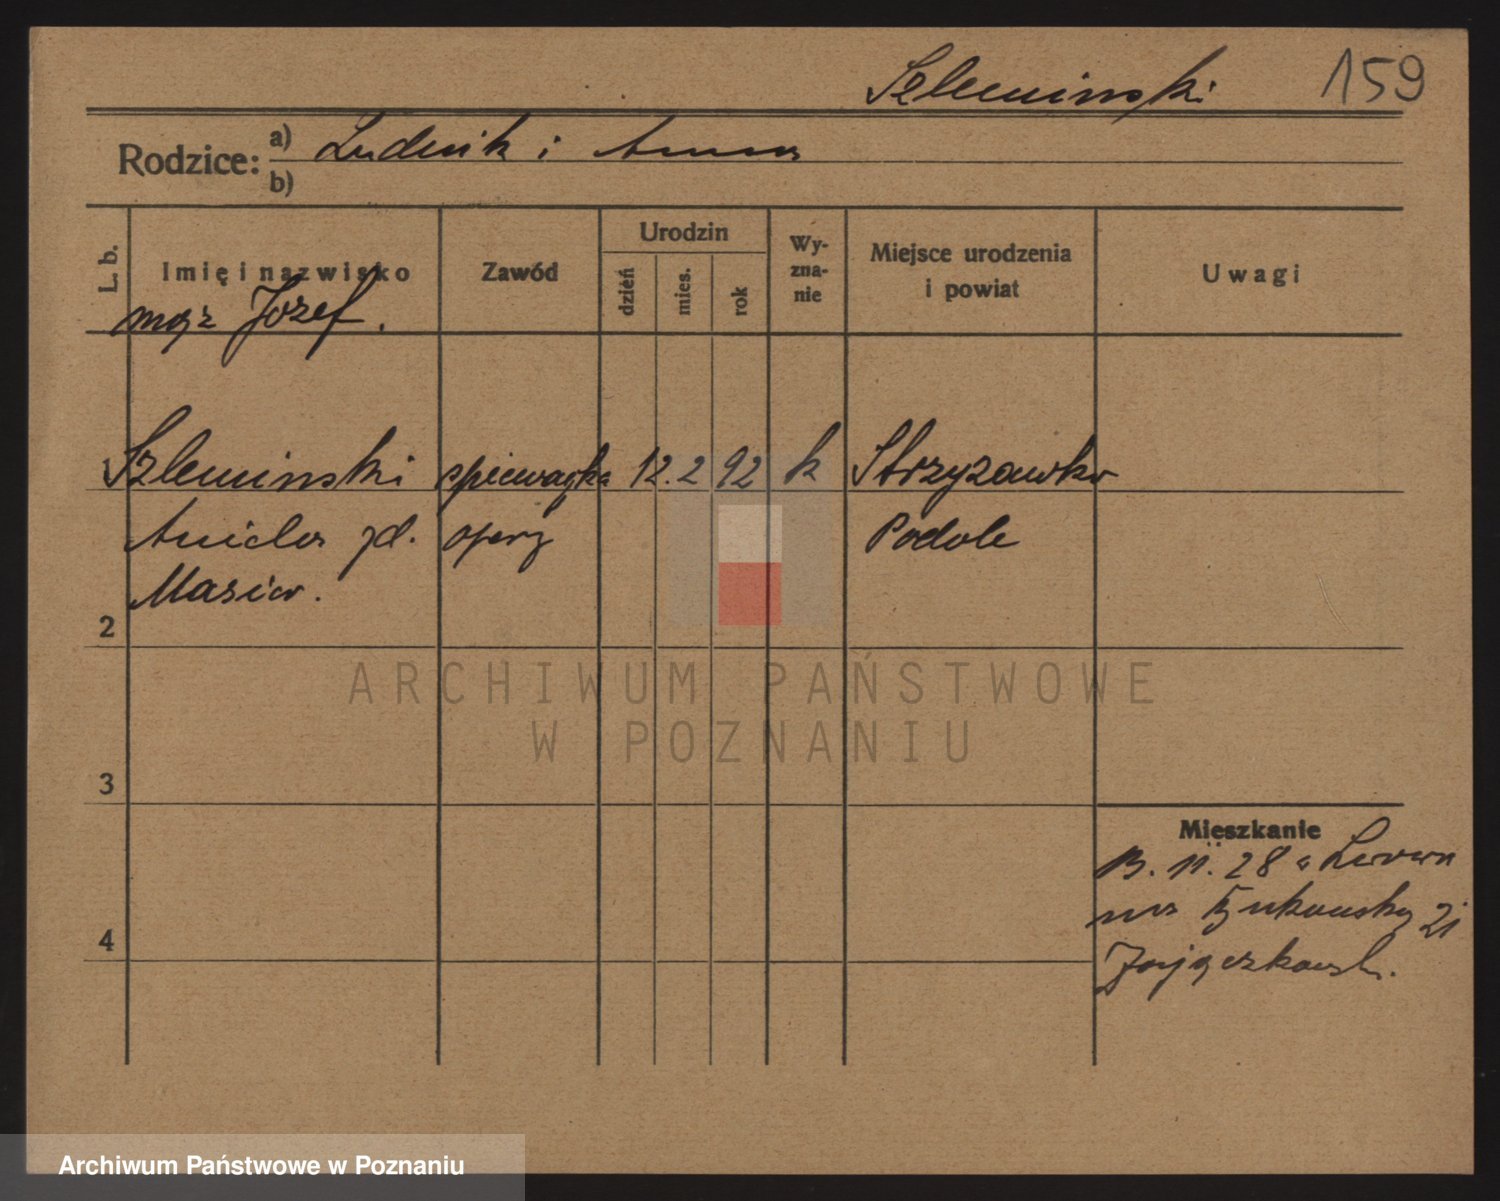 Szleminski 159
Rodzice: a) Ludwik i Anna
b)
L. b.
Imię i nazwisko
Zawód
Urodzin
dzień
mies.
rok
Wy-
zna-
nie
Miejsce urodzenia
i powiat
Uwagi
mąż Józef.
Szleminski śpiewaczka 12. 2 92 k Strzyzawka
Aniela zd. opery Podole
Masiew.
2
3
4
Mieszkanie
B. 11. 28 z Lwowa
na Bukowską 21
Zajączkowsk.
ARCHIWUM PAŃSTWOWE
W POZNANIU
Archiwum Państwowe w Poznaniu